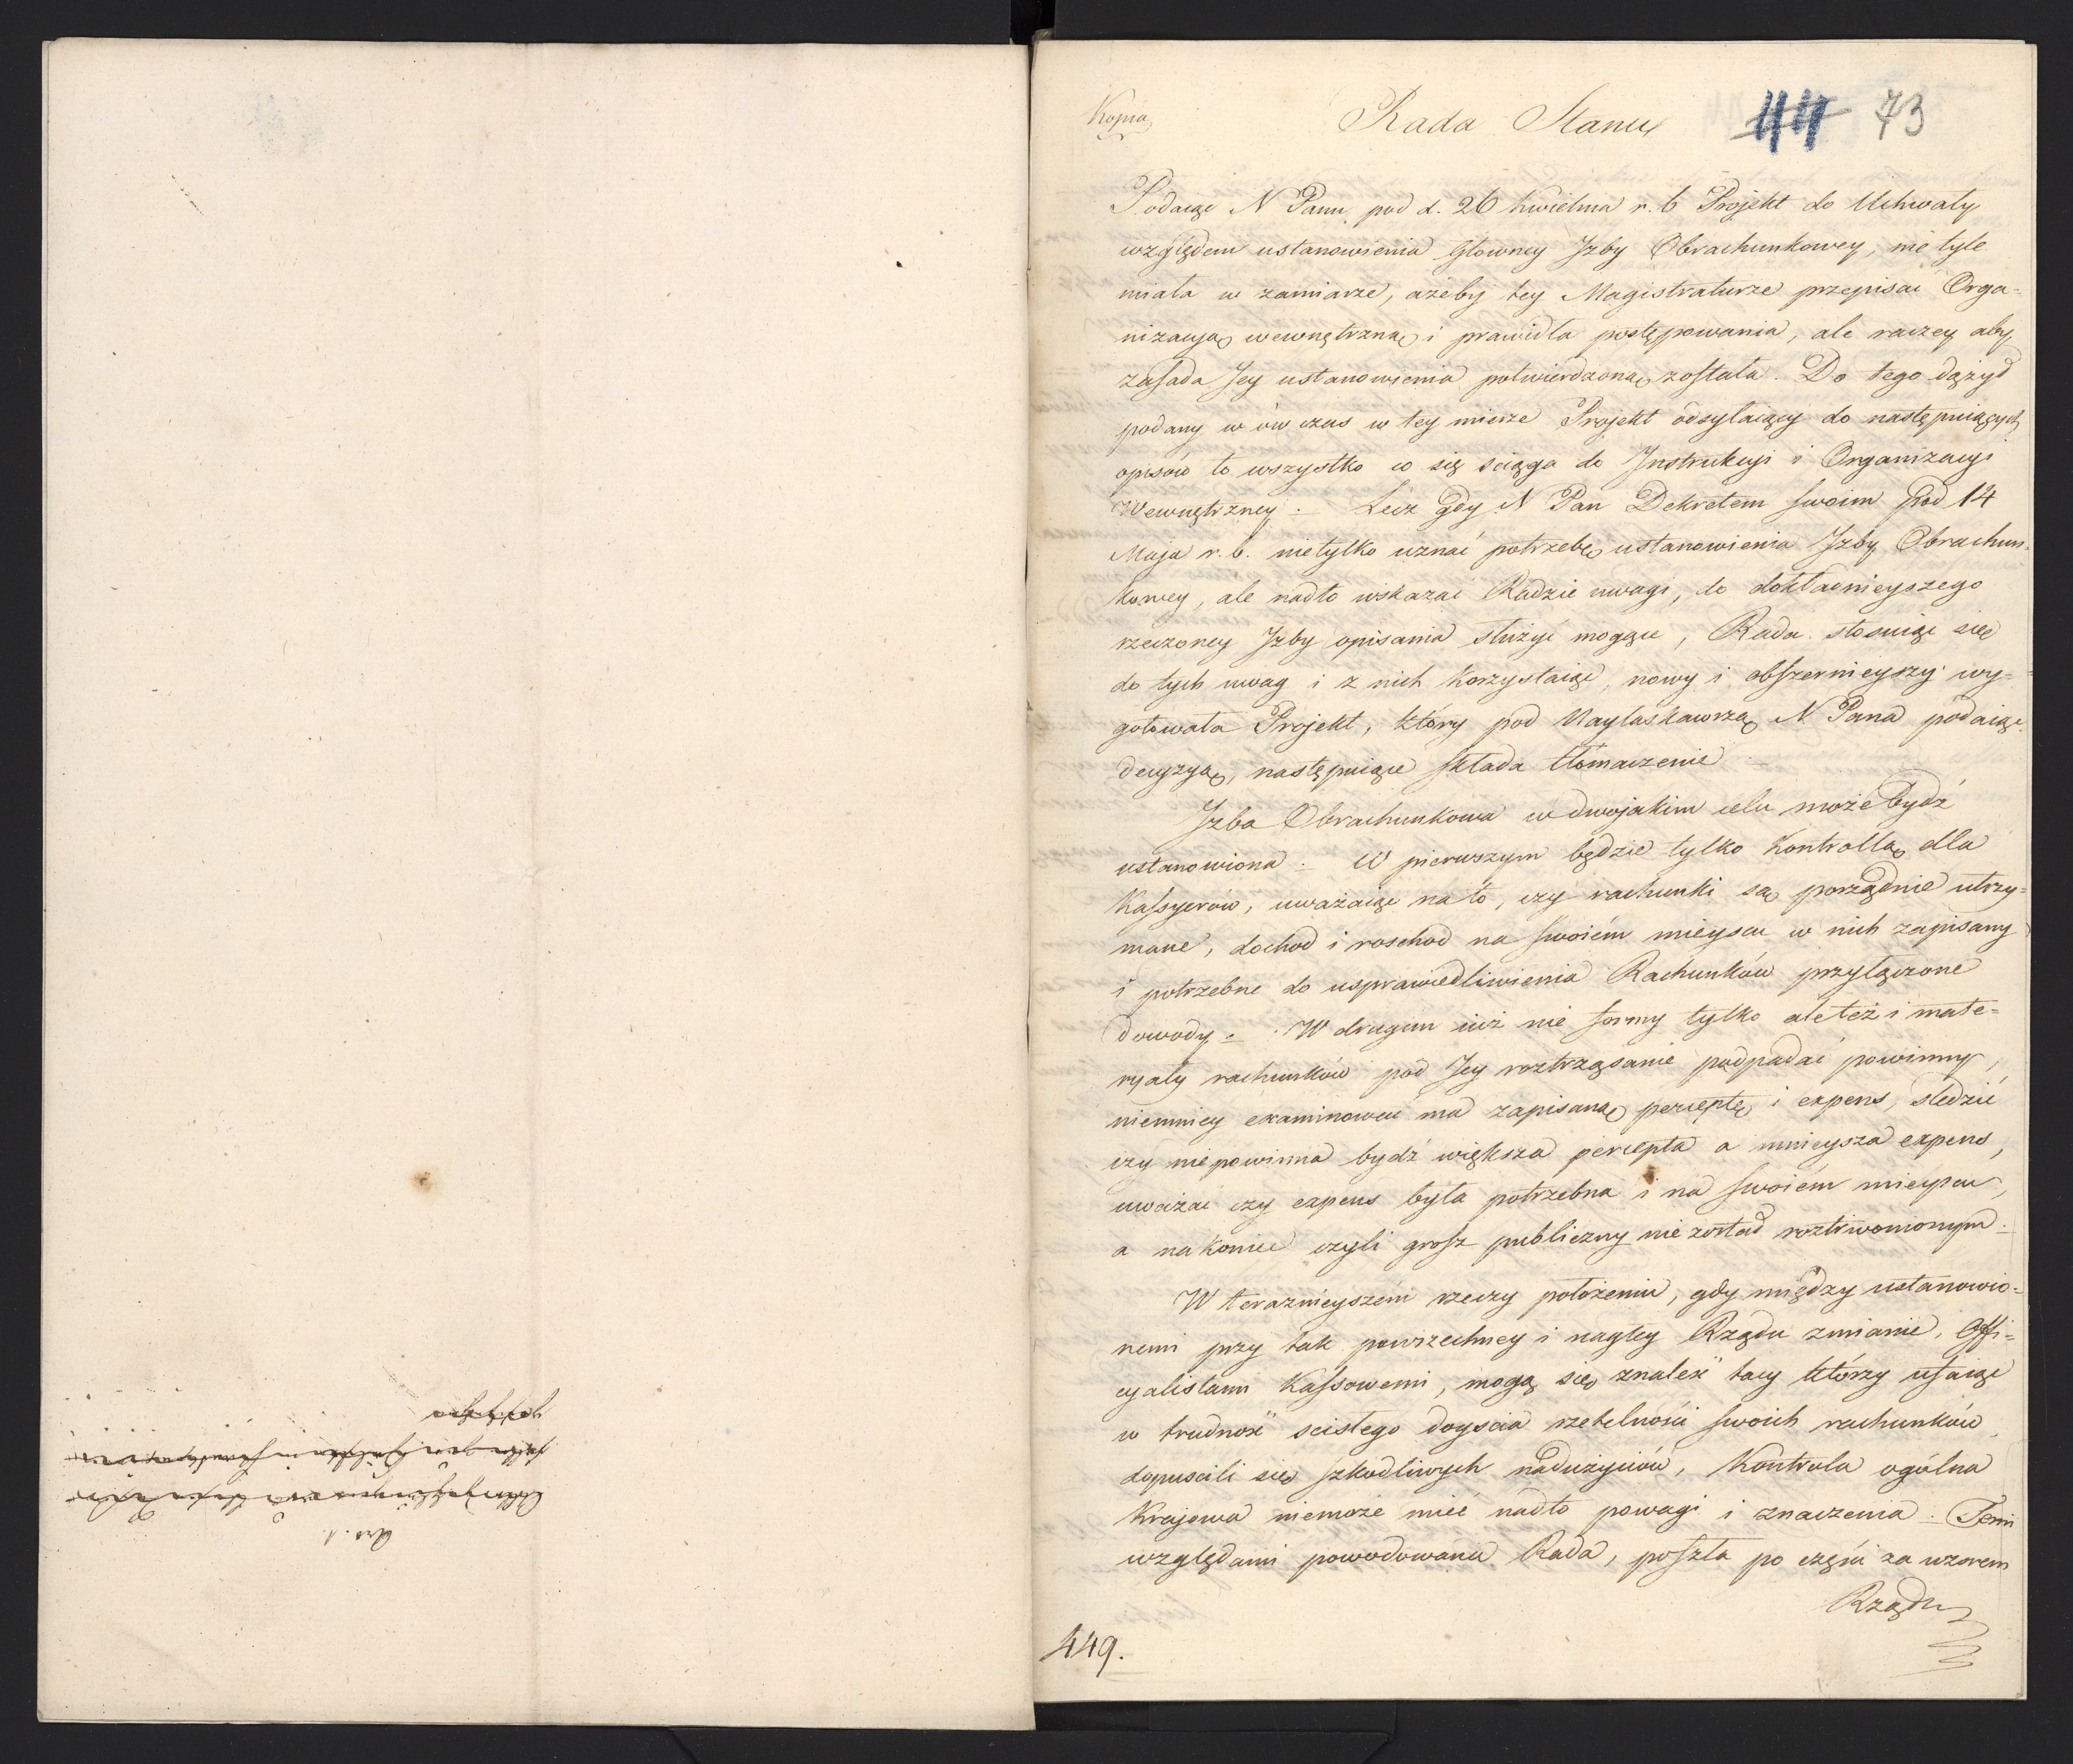 Kopia
Rada Stanu
44 73
Podaiąc N Panu pod d. 26 Kwietnia r. b Projekt do Uchwały
względem ustanowienia Głowney Jzby Obrachunkowey, nie tyle
miała w zamiarze, ażeby tey Magistraturze przepisać Orga=
nizacyą wewnętrzną i prawidła postępowania, ale raczey aby
zasada Jey ustanowienia potwierdzoną została. Do tego dążył
podany w ów czas w tey mierze Projekt odsyłaiący do następuiących
opisów to wszystko co się sciąga do Jnstrukcyi i Organizacyi
Wewnętrzney. Lecz gdy N Pan Dekretem swoim pod 14
Maja r. b. nietylko uznać potrzebę ustanowienia Jzby Obrachun=
kowey, ale nadto wskazać Radzie uwagi, do dokładnieyszego
rzeczoney Jzby opisania służyć mogące, Rada stosuiąc się
do tych uwag i z nich korzystaiąc, nowy i obszernieyszy wy=
gotowała Projekt, który pod Nayłaskawszą N. Pana podaiąc
decyzyą, następuiące składa tłómaczenie
Jzba Obrachunkowa w dwojakim celu może bydź
ustanowiona. W pierwszym będzie tylko Kontrollą dla
Kassyerów, uważaiąc na to, czy rachunki są porządnie utrzy=
mane, dochod i roschod na swoiém mieyscu w nich zapisany
i potrzebne do usprawiedliwienia Rachunków przyłączone
dowody. W drugim iuż nie formy tylko ale też i mate=
ryały rachunków pod Jey roztrząsanie podpadać powinny,
niemniey examinować ma zapisaną perceptę i expens, sledzić
czy niepowinna bydź większa percepta a mnieysza expens,
uważać czy expens była potrzebna i na swoiém mieyscu,
a nakoniec czyli grosz publiczny nie został roztrwonionym.
W teraznieyszém rzeczy położeniu, gdy między ustanowio=
nemi przy tak powszechney i nagłey Rządu zmianie, Offi=
cyalistami Kassowemi, mogą się znaleść tacy którzy ufaiąc
w trudność scisłego doyscia rzetelności swoich rachunków
dopuscili się szkodliwych nadużyciów, Kontrola ogólna
Krajowa niemoże mieć nadto powagi i znaczenia. Temi
względami powodowana Rada, poszła po części za wzorem
Rządu
449.